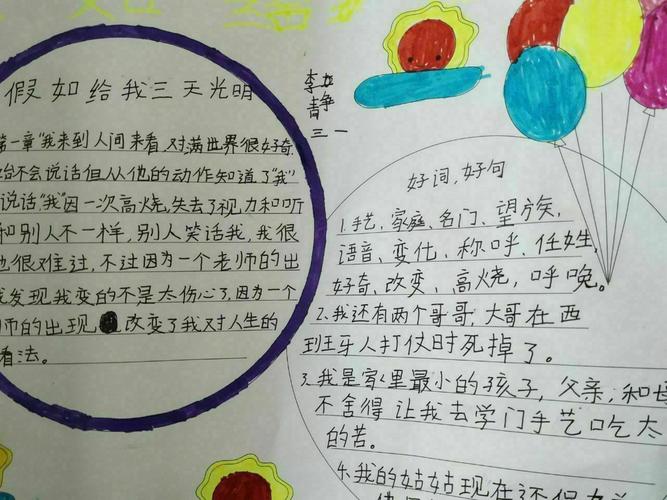 假如给我三天光明
第一章"我来到人间来看,对满世界很好奇,
不会说话但从他的动作知道了"我"
说话,"我"因一次高烧,失去了视力和听
和别人不一样,别人笑话我,我很
也很难过,不过因为一个老师的出
我发现我变的不是太伤心了,因为一个
师的出现,改变了我对人生的
看法。
李
静
三一
好词,好句
1.手艺、家庭、名门、望族、
语音、变化、称呼、任性、
好奇、改变、高烧,呼唤。
2.我还有两个哥哥,大哥在西
到王牙人打仗时死掉了。
3.我是家里最小的孩子,父亲,和母
不舍得让我去学门手艺吃太
的苦。
4.我的姑姑现在还保